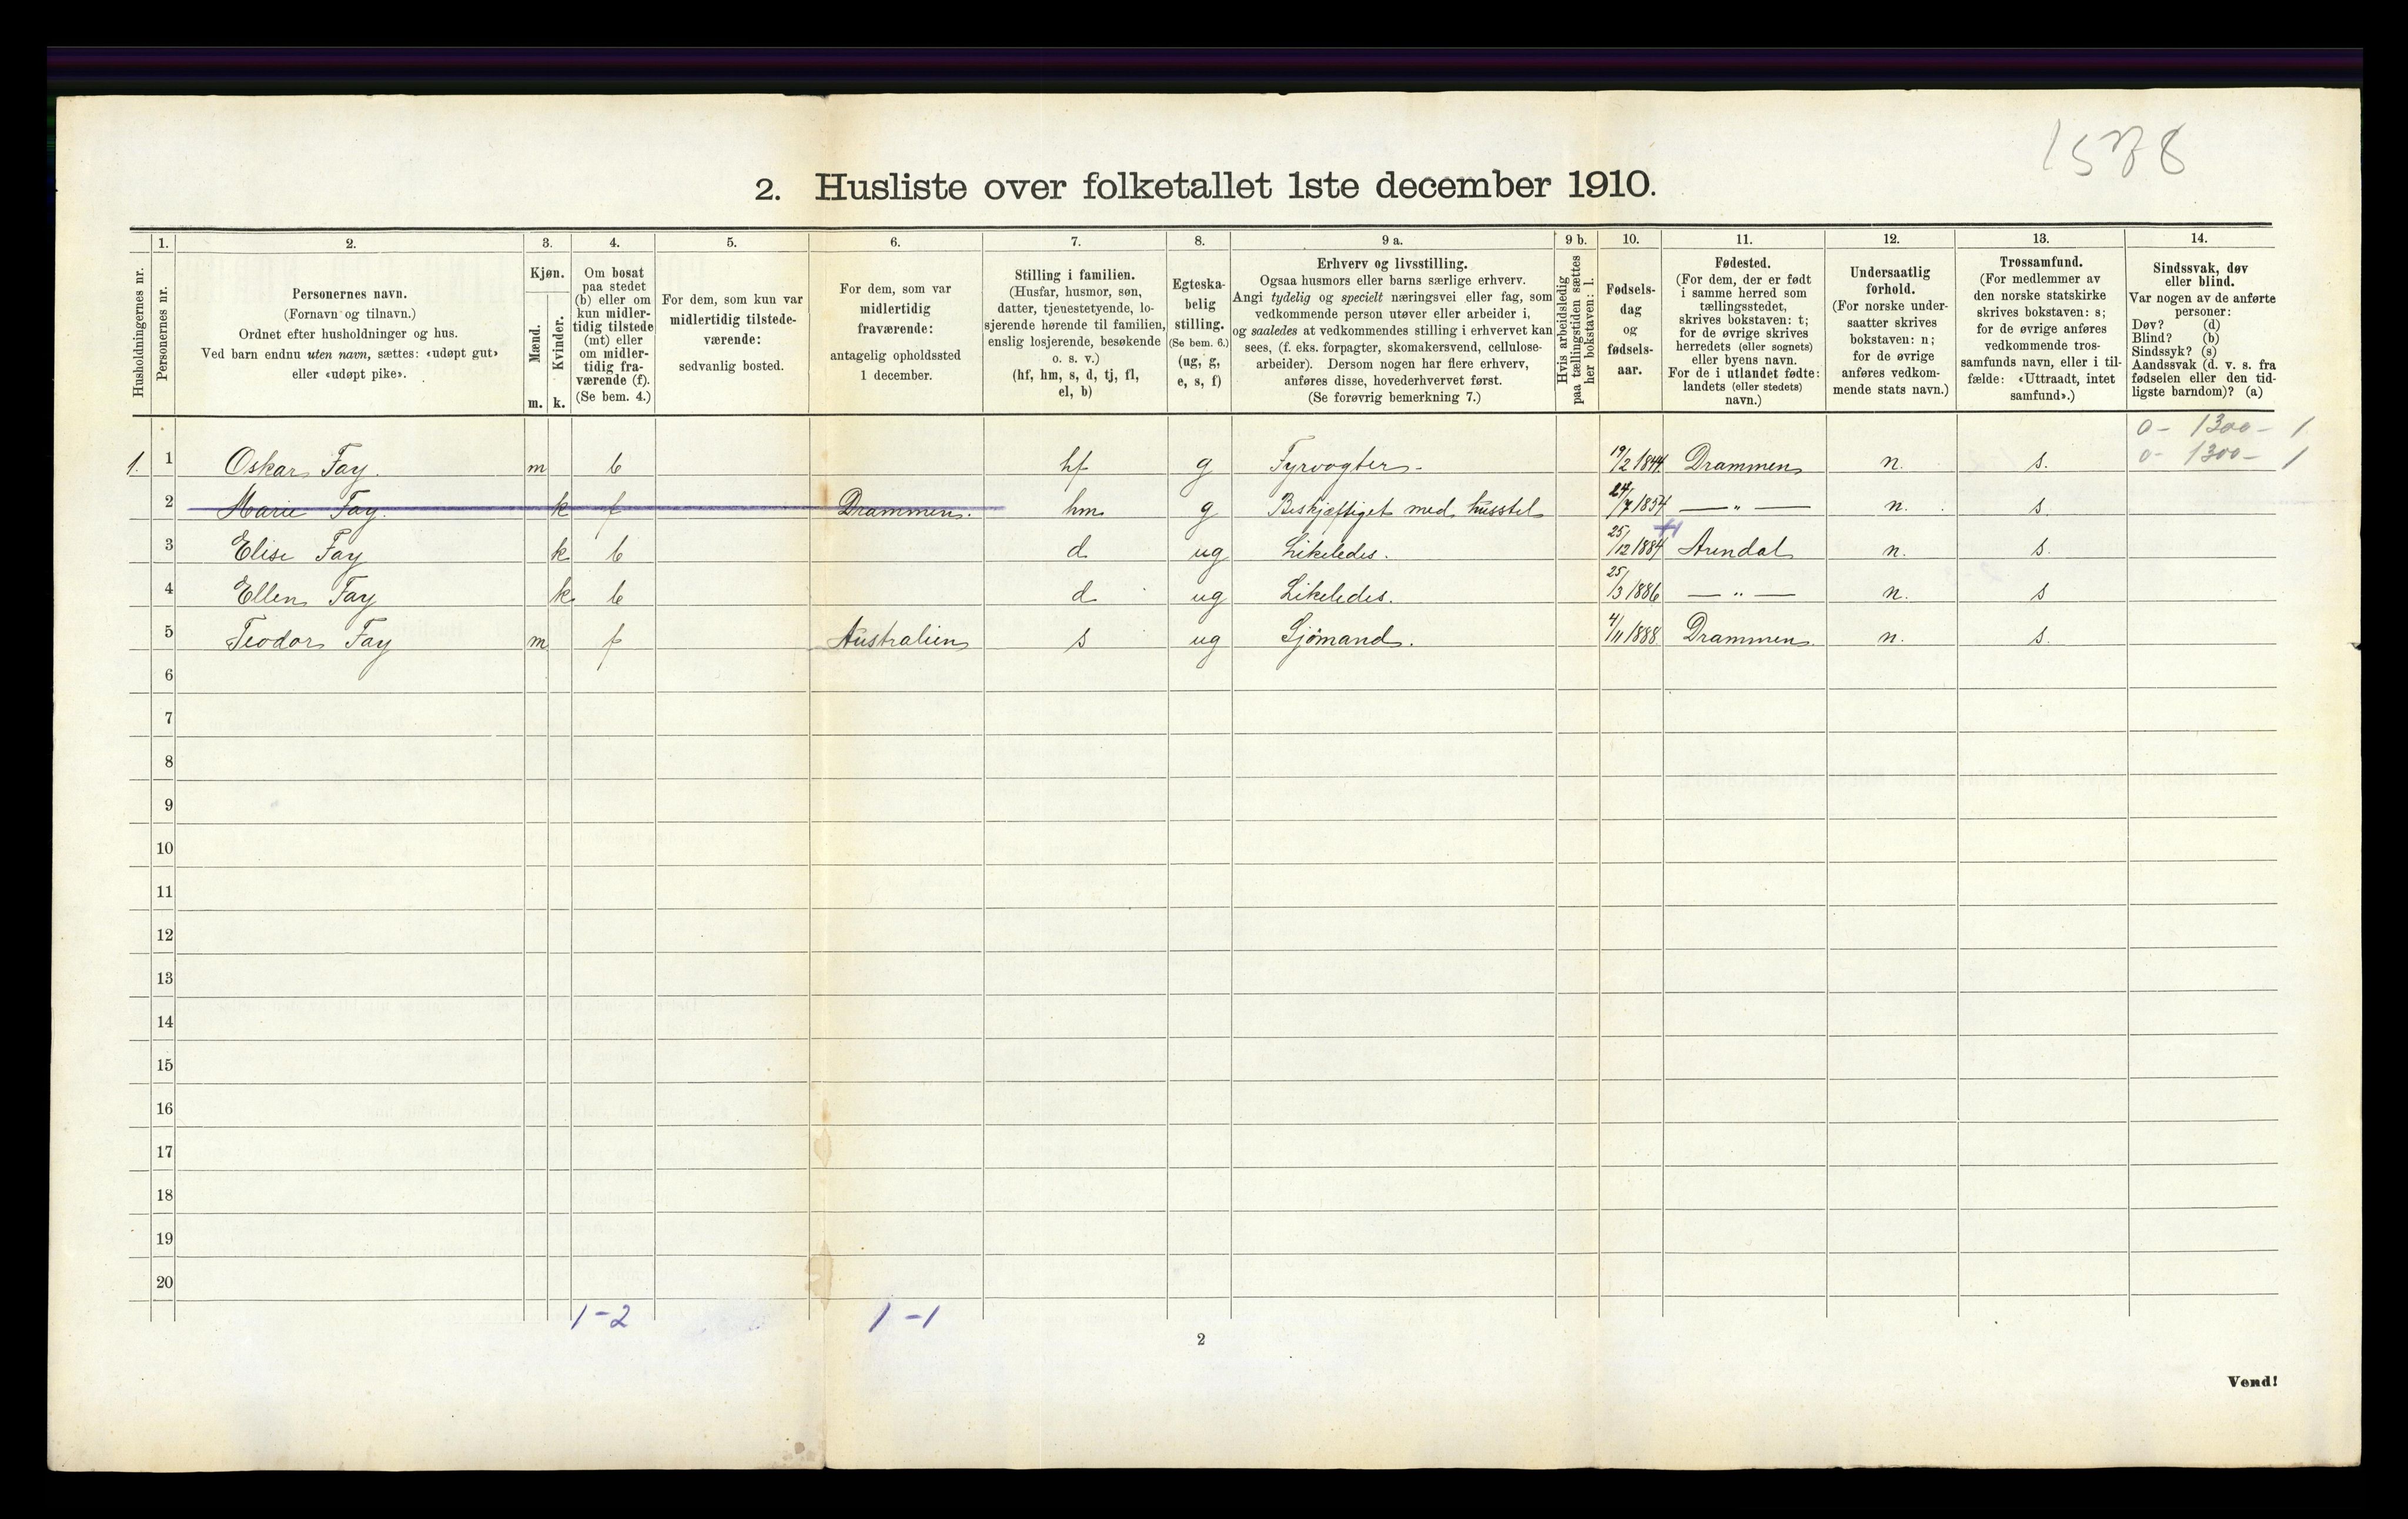 1578
2. Husliste over folketallet 1ste december 1910.
Husholdningernes nr.
1. Personernes nr.
2. Personernes navn.
(Fornavn og tilnavn.)
Ordnet efter husholdninger og hus.
Ved barn endnu uten navn, sættes: «udøpt gut»
eller «udøpt pike».
3. Kjøn.
Mænd. m.
Kvinder. k.
4. Om bosat
paa stedet
(b) eller om
kun midler-
tidig tilstede
(mt) eller
om midler-
tidig fra-
værende (f).
(Se bem. 4.)
5. For dem, som kun var
midlertidig tilstede-
værende:
sedvanlig bosted.
6. For dem, som var
midlertidig
fraværende:
antagelig opholdssted
1 december.
7. Stilling i familien.
(Husfar, husmor, søn,
datter, tjenestetyende, lo-
sjerende hørende til familien,
enslig losjerende, besøkende
o. s. v.)
(hf, hm, s, d, tj, fl,
el, b)
8. Egteska-
belig
stilling.
(Se bem. 6.)
(ug, g,
e, s, f)
9 a. Erhverv og livsstilling.
Ogsaa husmors eller barns særlige erhverv.
Angi tydelig og specielt næringsvei eller fag, som
vedkommende person utøver eller arbeider i,
og saaledes at vedkommendes stilling i erhvervet kan
sees, (f. eks. forpagter, skomakersvend, cellulose-
arbeider). Dersom nogen har flere erhverv,
anføres disse, hovederhvervet først.
(Se forøvrig bemerkning 7.)
9 b. Hvis arbeidsledig
paa tællingstiden sættes
her bokstaven: l.
10. Fødsels-
dag
og
fødsels-
aar.
11. Fødested.
(For dem, der er født
i samme herred som
tællingsstedet,
skrives bokstaven: t;
for de øvrige skrives
herredets (eller sognets)
eller byens navn.
For de i utlandet fødte:
landets (eller stedets)
navn.)
12. Undersaatlig
forhold.
(For norske under-
saatter skrives
bokstaven: n;
for de øvrige
anføres vedkom-
mende stats navn.)
13. Trossamfund.
(For medlemmer av
den norske statskirke
skrives bokstaven: s;
for de øvrige anføres
vedkommende tros-
samfunds navn, eller i til-
fælde: «Uttraadt, intet
samfund».)
14. Sindssvak, døv
eller blind.
Var nogen av de anførte
personer:
Døv? (d)
Blind? (b)
Sindssyk? (s)
Aandssvak (d. v. s. fra
fødselen eller den tid-
ligste barndom)? (a)
0 - 1300 - 1
0 - 1300 - 1
1. 1 Oskar Fay. m b hf g Fyrvogter. 19/2 1844. Drammen n. s.
2 Marie Fay. k f Drammen. hm g Beskjæftiget med husstel 24/7 1854 — " — n. s.
3 Elise Fay k b d ug Likeledes. 25/12 1884 Arendal n. s.
4 Ellen Fay k b d ug Likeledes. 25/3 1886 — " — n. s
5 Teodor Fay m f Australien s ug Sjömand. 4/11 1888 Drammen. n. s.
6
7
8
9
10
11
12
13
14
15
16
17
18
19
20
1-2 1-1
2
Vend!